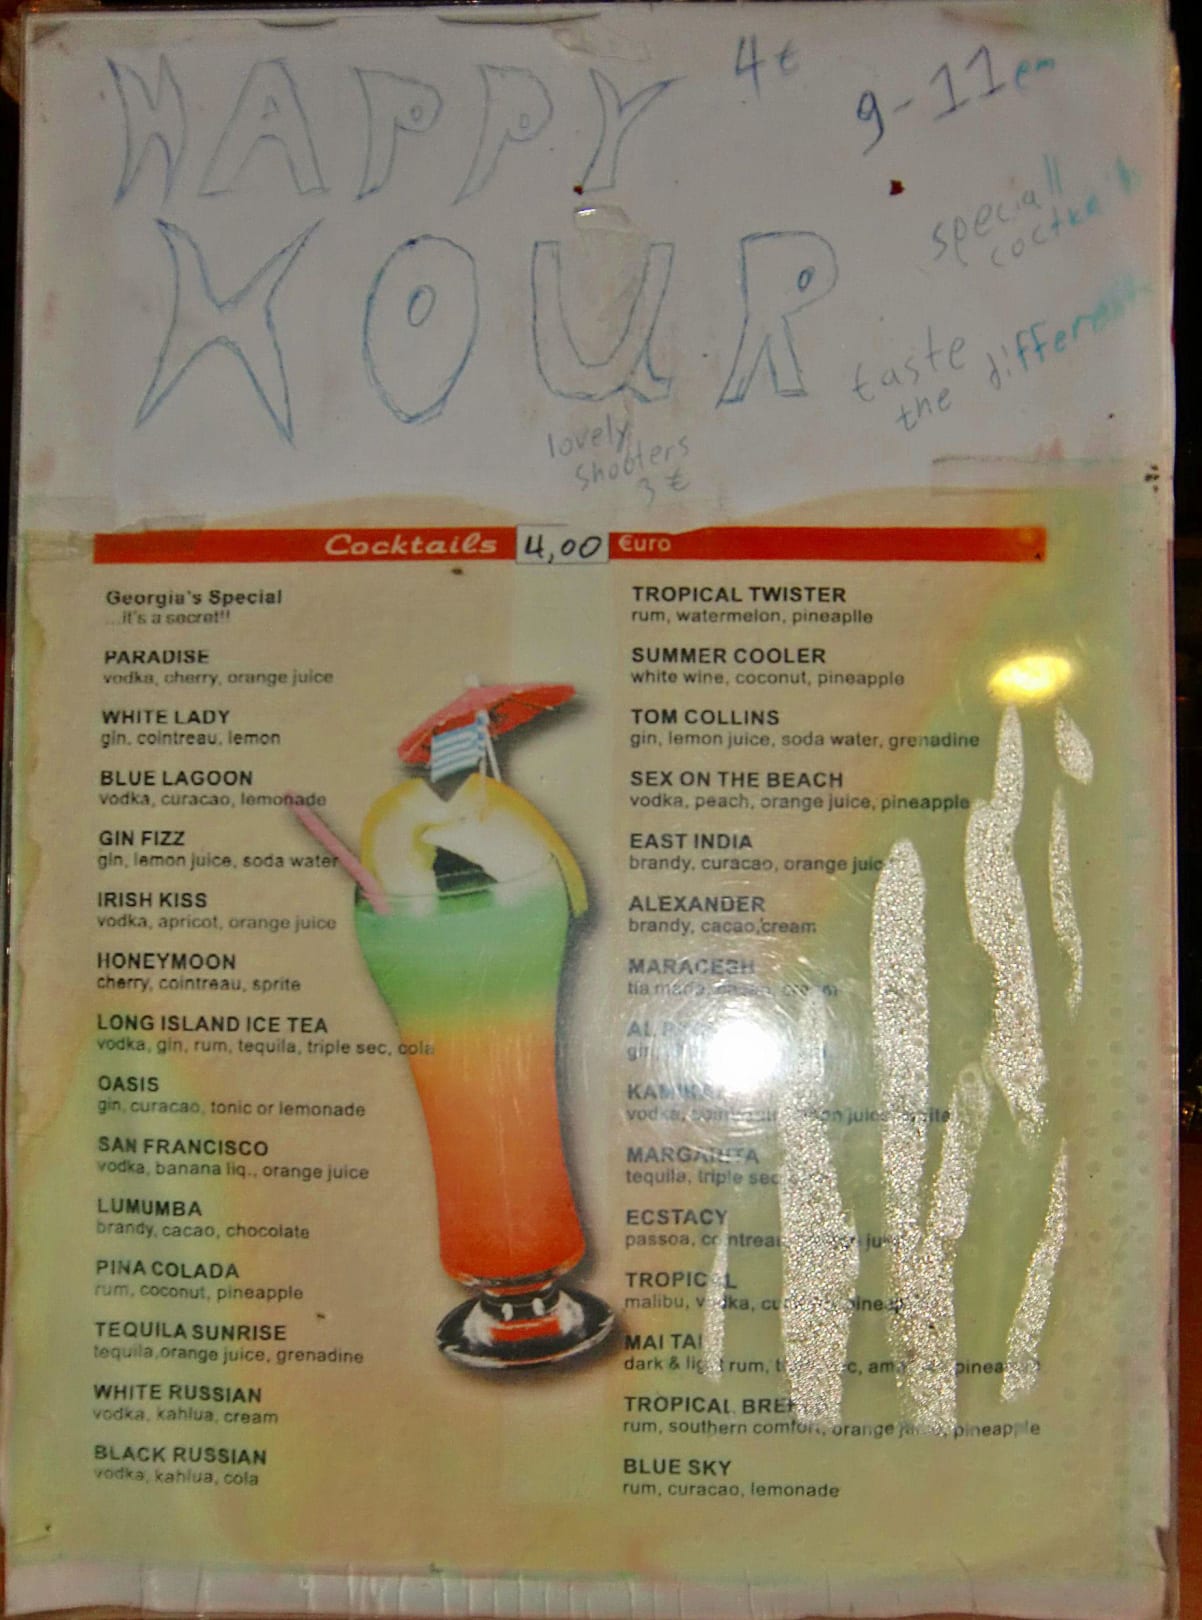 HAPPY 4€ 9-11 pm
HOUR
speciall
coctkails
taste
the difference
lovely
shooters
3 €
Cocktails 4,00 €uro
Georgia's Special
...it's a secret!!
PARADISE
vodka, cherry, orange juice
WHITE LADY
gin, cointreau, lemon
BLUE LAGOON
vodka, curacao, lemonade
GIN FIZZ
gin, lemon juice, soda water
IRISH KISS
vodka, apricot, orange juice
HONEYMOON
cherry, cointreau, sprite
LONG ISLAND ICE TEA
vodka, gin, rum, tequila, triple sec, cola
OASIS
gin, curacao, tonic or lemonade
SAN FRANCISCO
vodka, banana liq., orange juice
LUMUMBA
brandy, cacao, chocolate
PINA COLADA
rum, coconut, pineapple
TEQUILA SUNRISE
tequila,orange juice, grenadine
WHITE RUSSIAN
vodka, kahlua, cream
BLACK RUSSIAN
vodka, kahlua, cola
TROPICAL TWISTER
rum, watermelon, pineaplle
SUMMER COOLER
white wine, coconut, pineapple
TOM COLLINS
gin, lemon juice, soda water, grenadine
SEX ON THE BEACH
vodka, peach, orange juice, pineapple
EAST INDIA
brandy, curacao, orange juice
ALEXANDER
brandy, cacao, cream
MARACESH
tia maria, cacao, cream
AL
gin,
KAMIKAZE
vodka, cointreau, lemon juice, sprite
MARGARITA
tequila, triple sec
ECSTACY
passoa, cointreau, juice
TROPICAL
malibu, vodka, pineapple
MAI TAI
dark & light rum, triple sec, pineapple
TROPICAL
rum, southern comfort, orange juice, pineapple
BLUE SKY
rum, curacao, lemonade